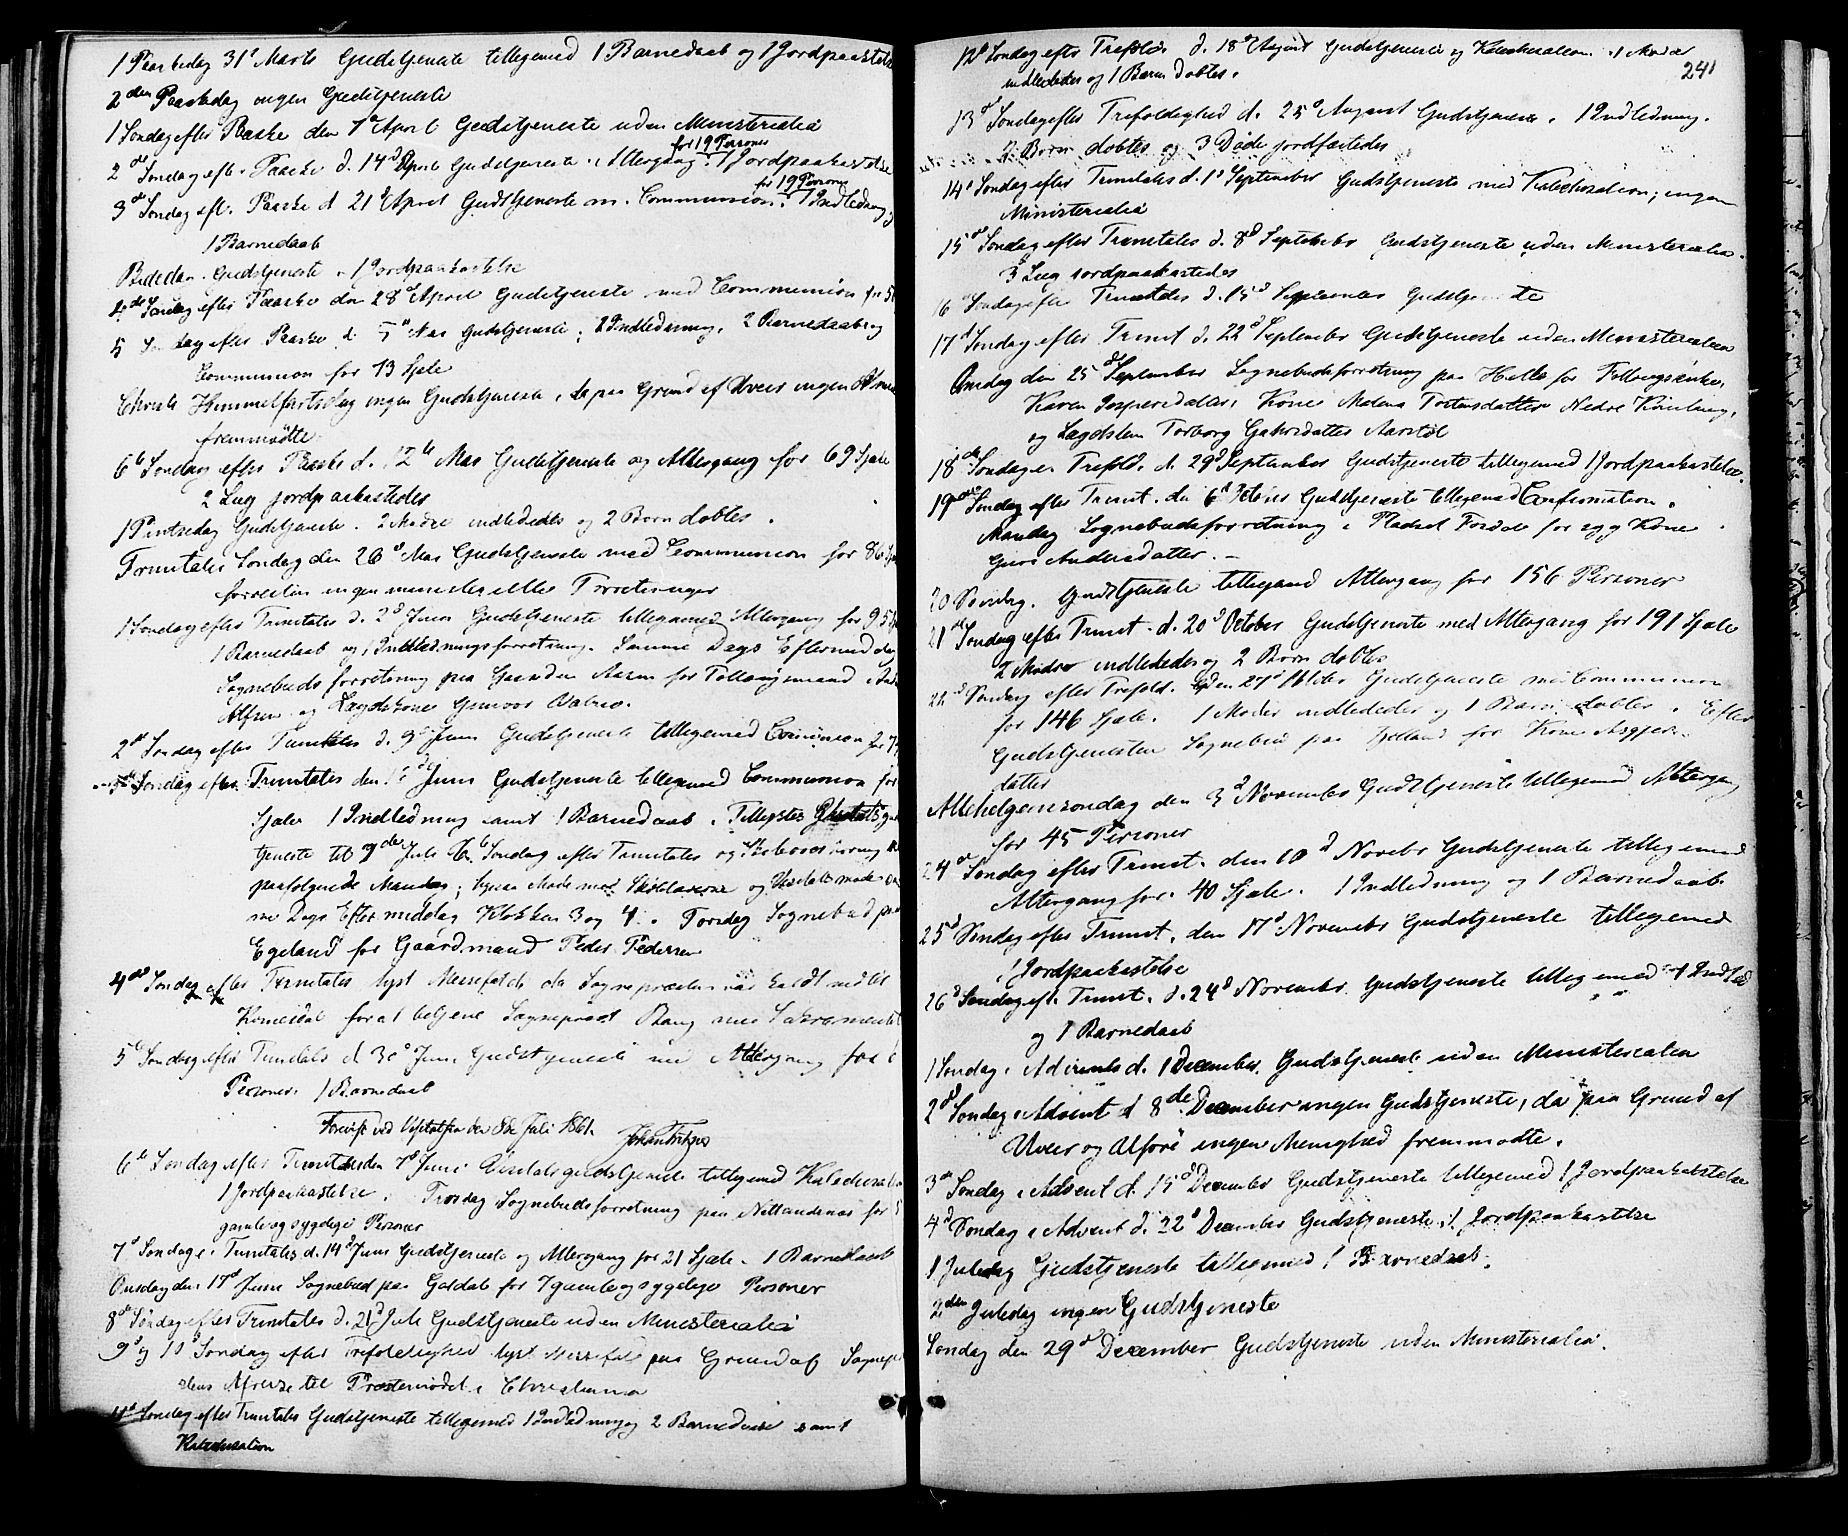 1 Paaskedag 31d Marts Gudstjeneste tillegemed 1 Barnedaab og 1 Jordpaakastelse
2den Paaskedag ingen Gudstjeneste
1 Søndag efter Paaske den 7d April Gudstjeneste uden Ministerialia
for 19 Personer
2de Søndag eft. Paaske d. 14d April Gudstjeneste. Altergang. 1 Jordpaakastelse
for 19 Personer
3de Søndag eft. Paaske d 21d April Gudstjeneste m. Communion. 1 Indledning,
1 Barnedaab
Bededan. Gudstjeneste. 1 Jordpaakastelse
4de Søndag efter Paaske den 28d April Gudstjeneste med Communion for
5 Søndag efter Paaske d. 5d Mai Gudstjeneste; 2 Indledning, 2 Barnedaab og
Communion for 13 Sjæle
Christi Himmelfartsdag ingen Gudstjeneste, da paa Grund af Uveir ingen
fremmødte.
6te Søndag efter Paaske d. 12te Mai Gudstjeneste og Altergang for 69 Sjæle
2 Liig jordpaakastedes
1 Pintsedag Gudstjeneste. 2 Mødre indlededes og 2 Børn døbtes.
Trinitatis Søndag den 26d Mai Gudstjeneste med Communion for 86
forresten ingen ministerielle Forretninger
1 Søndag efter Trinitatis d. 2d Juni Gudstjeneste tillegemed Altergang for 95
1 Barnedaab og 1 Indledningsforretning. Samme Dags Eftermiddag
Sognebudsforretning paa Gaarden Aarre for Føllaugsmand
Alfsen og Lægdskone Gunvor
2de Søndag efter Trinitatis d. 9d Juni Gudstjeneste tillegemed Communion for 74
3de Søndag efter Trinitatis den 16d Juni Gudstjeneste tillegemed Communion for
Sjæle 1 Indledning samt 1 Barnedaab. Tillystes
tjeneste til 7de Juli 6te Søndag efter Trinitatis og
paafølgende Mandag; ligesaa Møde med Skolelærerne og
me Dags Eftermiddag Klokken 3 og 4. Torsdag Sognebud paa
Egeland for Gaardmand Peder Pedersen
4de Søndag efter Trinitatis lyst Messefald da Sognepræsten var kaldt ned til
for at betjene Sognepræst Bang med Sakramentet
5te Søndag efter Trinitatis d 30d Juni Gudstjeneste med Altergang for
Personer. 1 Barnedaab
Foreviist ved Visitatsen den 8de Juli 1861.
6te Søndag efter Trinitatis den 7d Juni Visitatsgudstjeneste tillegemed Katechisation
1 Jordpaakastelse. Torsdag Sognebudsforretning paa Nettandsnes for
gamle og sygelige Personer
7d Søndag e. Trinitatis d. 14d Juni Gudstjeneste og Altergang for 21 Sjæle. 1 Barnedaab
Onsdag den 17d Juni Sognebud paa Galdal for 7 gamle og sygelige Personer
8de Søndag efter Trinitatis d. 21d Juli Gudstjeneste uden Ministerialia
9d og 10d Søndag efter Trefoldighed lyst Messefald paa Grund af Sognepræ
stens Afreise til Præstemødet i Christiania
11te Søndag efter Trinitatis Gudstjeneste tillegemed 1 Indledning og 2 Barnedaab samt
Katechisation
241
12te Søndag efter Trefoldo d. 18d August Gudstjeneste og Katechisation. 1 Moder
indlededes og 1 Barn døbtes.
13de Søndag efter Trefoldighed d. 25d August Gudstjeneste. 1 Indledning.
2 Børn døbtes og 3 Døde jordfæstedes
14d Søndag efter Trinitatis d. 1d September Gudstjeneste med Katechisation; ingen
Ministerialia
15de Søndag efter Trinitatis d. 8d September Gudstjeneste uden Ministerialia.
3 Liig jordpaakastedes
16 Søndag efter Trinitatis d. 15d September Gudstjeneste
17d Søndag efter Trinit d. 22d September Gudstjeneste uden Ministerialia
Onsdag den 25d September Sognebudsforretning paa Helle for Føllaugsenke
Karen Jespersdatter, Kone Malena Tostensdatter Nedre
og Lægdslem Torborg Gabrielsdatter Aarstøl
18de Søndag e. Trefold. d. 29d September Gudstjeneste tillegemed 1 Jordpaakastelse.
19de Søndag efter Trinit. den 6d October Gudstjeneste tillegemed Confirmation.
Mandag Sognebudsforretning i Pladset for syg Kone
Guri Andersdatter. –
20 Søndag. Gudstjeneste tillegemed Altergang for 156 Personer
21de Søndag efter Trinit. d. 20d October Gudstjeneste med Altergang for 191 Sjæle
2 Mødre indlededes og 2 Børn døbtes
22d Søndag efter Trefold. den 27d October Gudstjeneste med Communion
for 146 Sjæle. 1 Moder indlededes og 1 Barn døbtes. Efter
Gudstjenesten Sognebud paa for Kone
datter
Allehelgensøndag den 3d November Gudstjeneste tillegemed Altergang
for 45 Personer
24de Søndag efter Trinit. den 10d Novebr Gudstjeneste tillegemed
Altergang for 40 Sjæle. 1 Indledning og 1 Barnedaab
25d Søndag efter Trinit. den 17d Novembr Gudstjeneste tillegemed
1 Jordpaakastelse
26d Søndag eft. Trinit. d. 24d Novembr. Gudstjeneste tillegemed 1 Indled
og 1 Barnedaab
1 Søndag i Advents d. 1 December. Gudstjeneste uden Ministerialia
2d Søndag i Advent d 8de December ingen Gudstjeneste, da paa Grund af
Uveir og Uføre ingen Menighed fremmødte.
3de Søndag i Advent d. 15d December Gudstjeneste tillegemed 1 Jordpaakastelse
4d Søndag i Advent d. 22d December Gudstjeneste. 1 Jordpaakastelse
1 Juledag Gudstjeneste tillegemed 1 Barnedaab.
2den Juledag ingen Gudstjeneste
Søndag den 29de December Gudstjeneste uden Ministerialia.